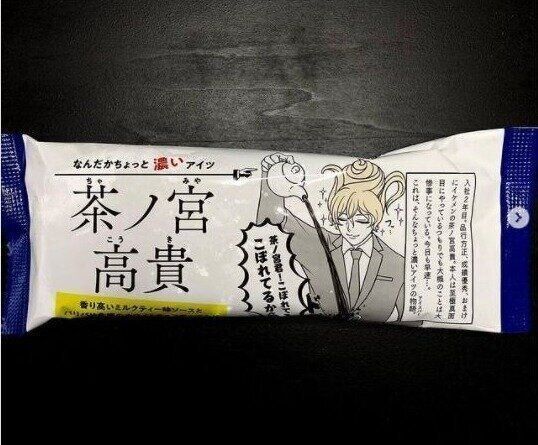 なんだかちょっと濃いアイツ
茶ノ宮
ちゃ みや
高貴
こう き
香り高いミルクティー味ソースと
茶ノ宮君ーこぼれて
こぼれてるか
入社2年目。品行方正、成績優秀、おまけ
にイケメンの茶ノ宮高貴。本人は至極真面
目にやっているつもりでも大概のことは大
惨事になっている。今日も早速…。
これは、そんなちょっと濃いアイツの物語。